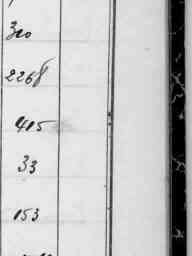 320
2268
415
33
153